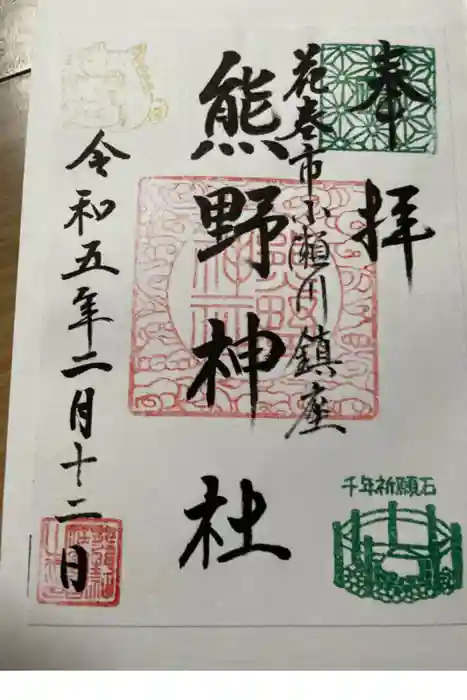 奉拝
花巻市小瀬川鎮座
熊野神社
令和五年二月十二日
千年祈願石